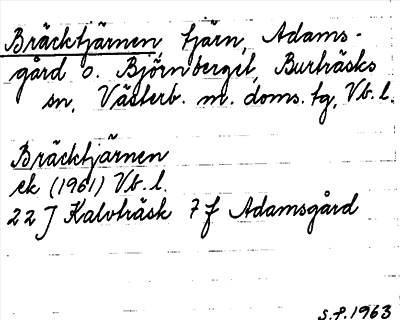 Bräcktjärnen, tjärn, Adams-
gård o. Björnberget, Burträsks
sn, Västerb. m. doms. tg, Vb. l.
Bräcktjärnen
ek (1961) Vb. l.
22 J Kalvträsk 7 f Adamsgård
S.P. 1963